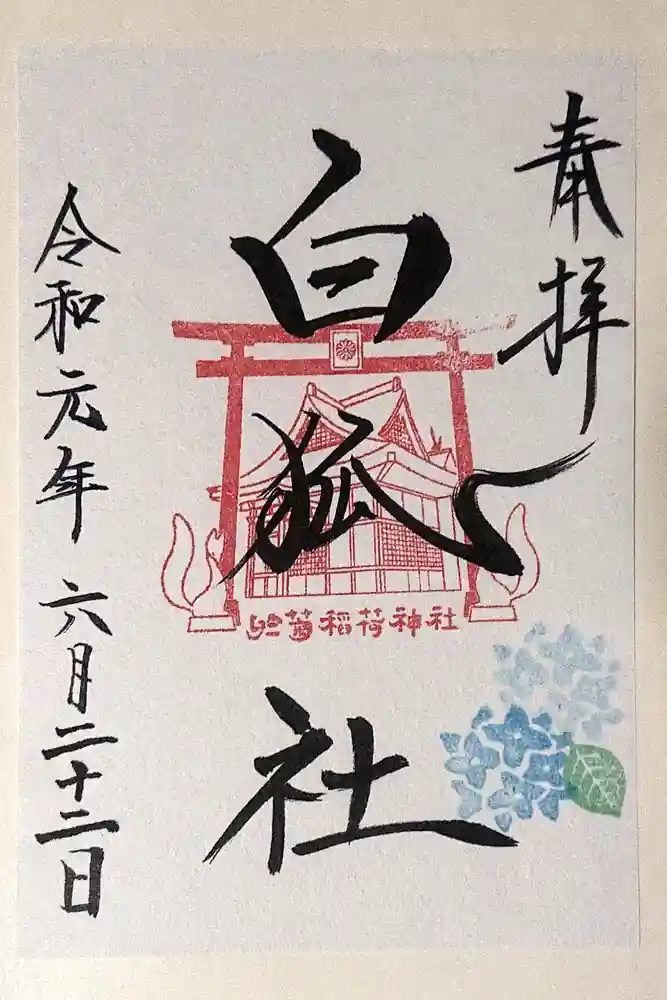 奉拝
白狐社
稲荷神社
令和元年 六月二十二日